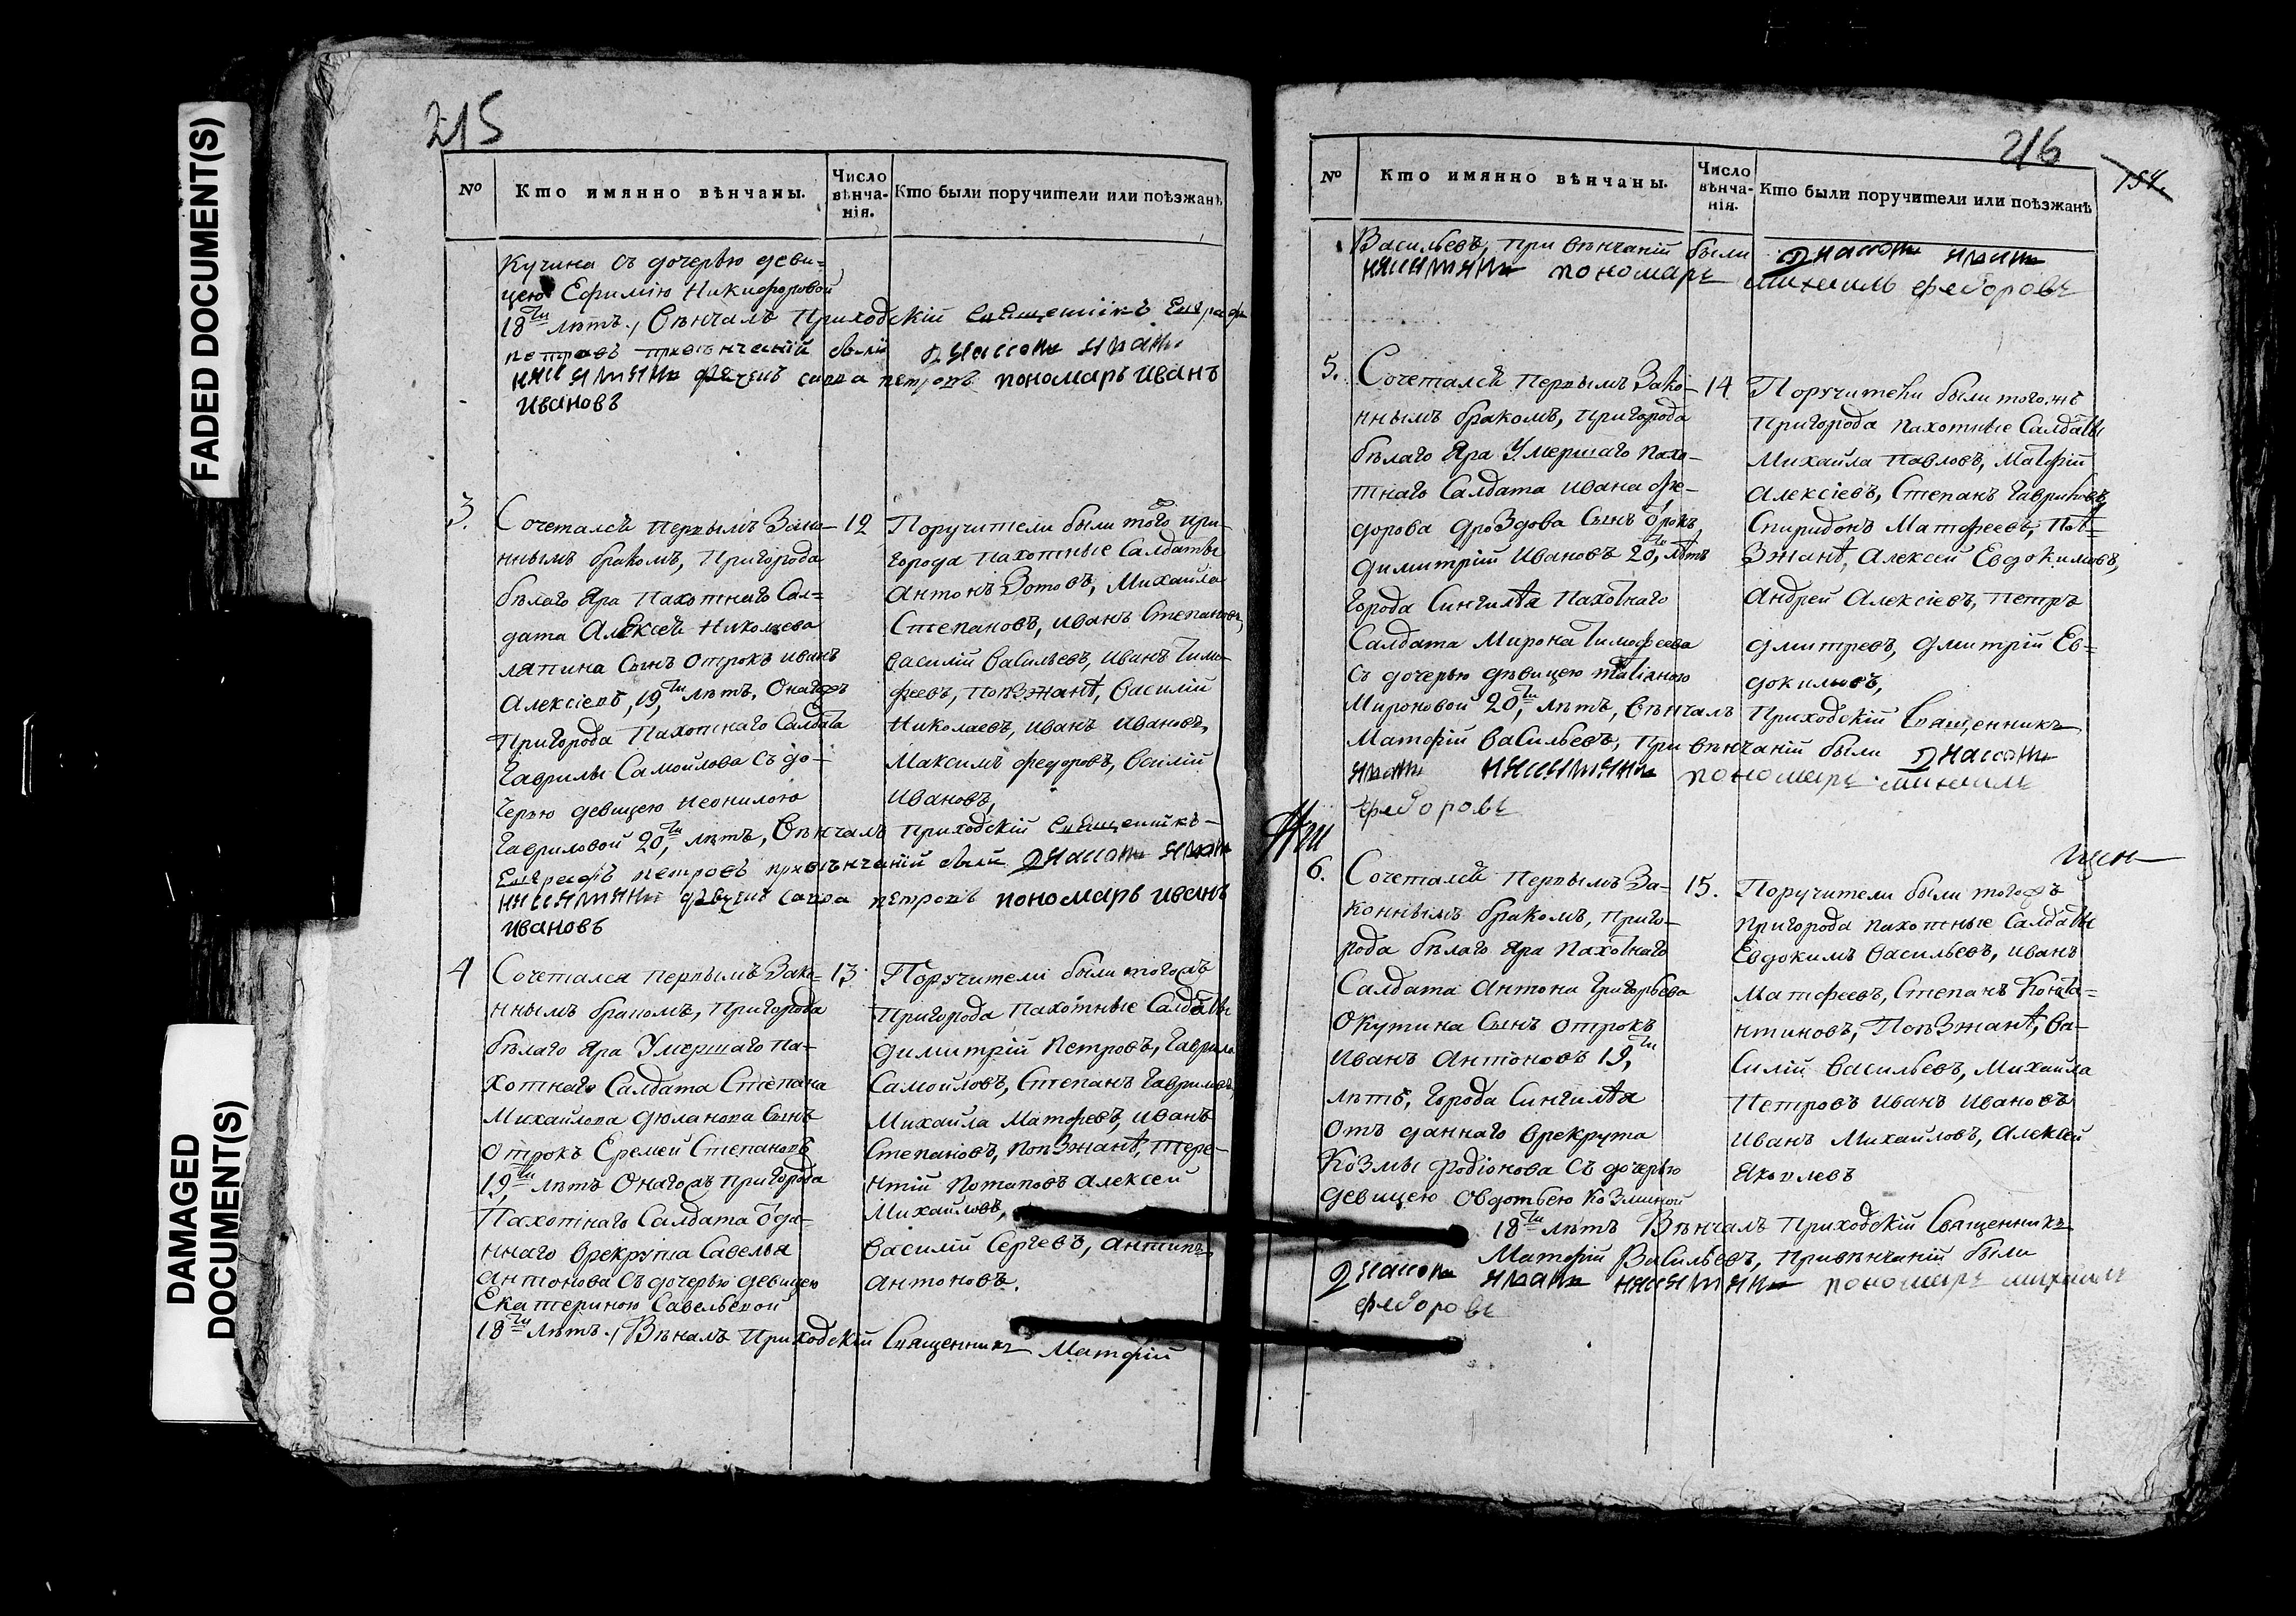 FADED DOCUMENT(S)
DAMAGED
DOCUMENT(S)
215
№ Кто имянно вѣнчаны. Число вѣнча-нія. Кто были поручители или поѣзжанѣ
Кучина съ дочерью деви=
цею Ефимію Никифоровой
18ти лѣтъ, Вѣнчалъ Приходскій Священникъ
петровъ привѣнчаній были
петровъ пономарь иванъ
ивановъ
3. Сочетался первымъ Зако-
ннымъ бракомъ, Пригорода
бѣлаго Яра Пахотнаго Сал=
дата Алексей Николаева
ляпина Сынъ отрокъ иванъ
Алексіевъ, 19ти лѣтъ, Онагожъ
Пригорода Пахотнаго Салдата
Гаврилы Самойлова съ до-
черью девицею Неонилою
Гавриловой 20ти лѣтъ, Вѣнчалъ приходскій священникъ
петровъ привѣнчаній были
петровъ пономарь иванъ
ивановъ
12 Поручители были того при-
города пахотные Салдаты
Антонъ Зотовъ, Михайла
Степановъ, иванъ Степановъ,
василій васильевъ, иванъ Тимо-
феевъ, поѣзжанѣ, василій
Николаевъ, иванъ ивановъ,
Максимъ федоровъ, василій
ивановъ,
4 Сочетался первымъ Зако-
ннымъ бракомъ, Пригорода
бѣлаго Яра Умершаго па-
хотнаго Салдата Степана
Михайлова дюланова Сынъ
отрокъ Еремей Степановъ
19ти лѣтъ Онагожъ пригорода
Пахотнаго Салдата ода-
ннаго врекруты Савелья
антонова съ дочерью девицею
Екатериною Савельевой
18ти лѣтъ, Вѣналъ Приходскій Священникъ Матфій
13 Поручители были тогожъ
Пригорода Пахотные Салдаты
димитрій Петровъ, Гаврила
Самойловъ, Степанъ Гавриловъ,
Михайла Матфевъ, иванъ
Степановъ, поѣзжанѣ, тере-
нтій потаповъ алексей
Михайловъ,
василій Сергевъ, антипъ
антоновъ.
216
154.
№ Кто имянно вѣнчаны. Число вѣнча-нія. Кто были поручители или поѣзжанѣ
Васильевъ, при вѣнчаній были
пономарь федоровъ
5. Сочетался первымъ Зако-
ннымъ бракомъ, пригорода
бѣлаго Яра Умершаго пахо-
тнаго Салдата ивана фе-
дорова дроздова Сынъ отрокъ
димитрій ивановъ 20ти лѣтъ
города Сингилѣя пахотнаго
Салдата Мирона Тимофеева
съ дочерью дѣвицею
Мироновой 20ти лѣтъ, вѣнчалъ Приходскій Священникъ
Матфій васильевъ, при вѣнчаній были
пономарь
федоровъ
14 Поручители были того же
пригорода пахотные Салдаты
Михайла Павловъ, Матфій
алексіевъ, Степанъ Гавриловъ,
Спиридонъ Матфеевъ, поѣ=
зжанѣ, Алексей Евдокимовъ,
андрей Алексіевъ, петръ
дмитревъ, дмитрій Ев=
докимовъ,
6. Сочетался первымъ За-
коннымъ бракомъ, приго-
рода бѣлаго Яра пахотнаго
Салдата антона Григорьева
окутина Сынъ отрокъ
иванъ антоновъ 19ти
лѣтъ, города Сингилѣя
отъ даннаго врекрута
Козмы родіонова съ дочерью
девицею овдотьею козминой
18ти лѣтъ Вѣнчалъ приходскій Священникъ
Матфій Васильевъ, привѣнчаній были
пономарь михаилъ
федоровъ
15. Поручители были тогожъ
пригорода пахотные Салдаты
Евдокимъ васильевъ, иванъ
Матфеевъ, Степанъ Конста-
нтиновъ, Поѣзжанѣ, ва-
силій васильевъ, Михайла
Петровъ иванъ ивановъ
иванъ Михайловъ, алексей
яковлевъ